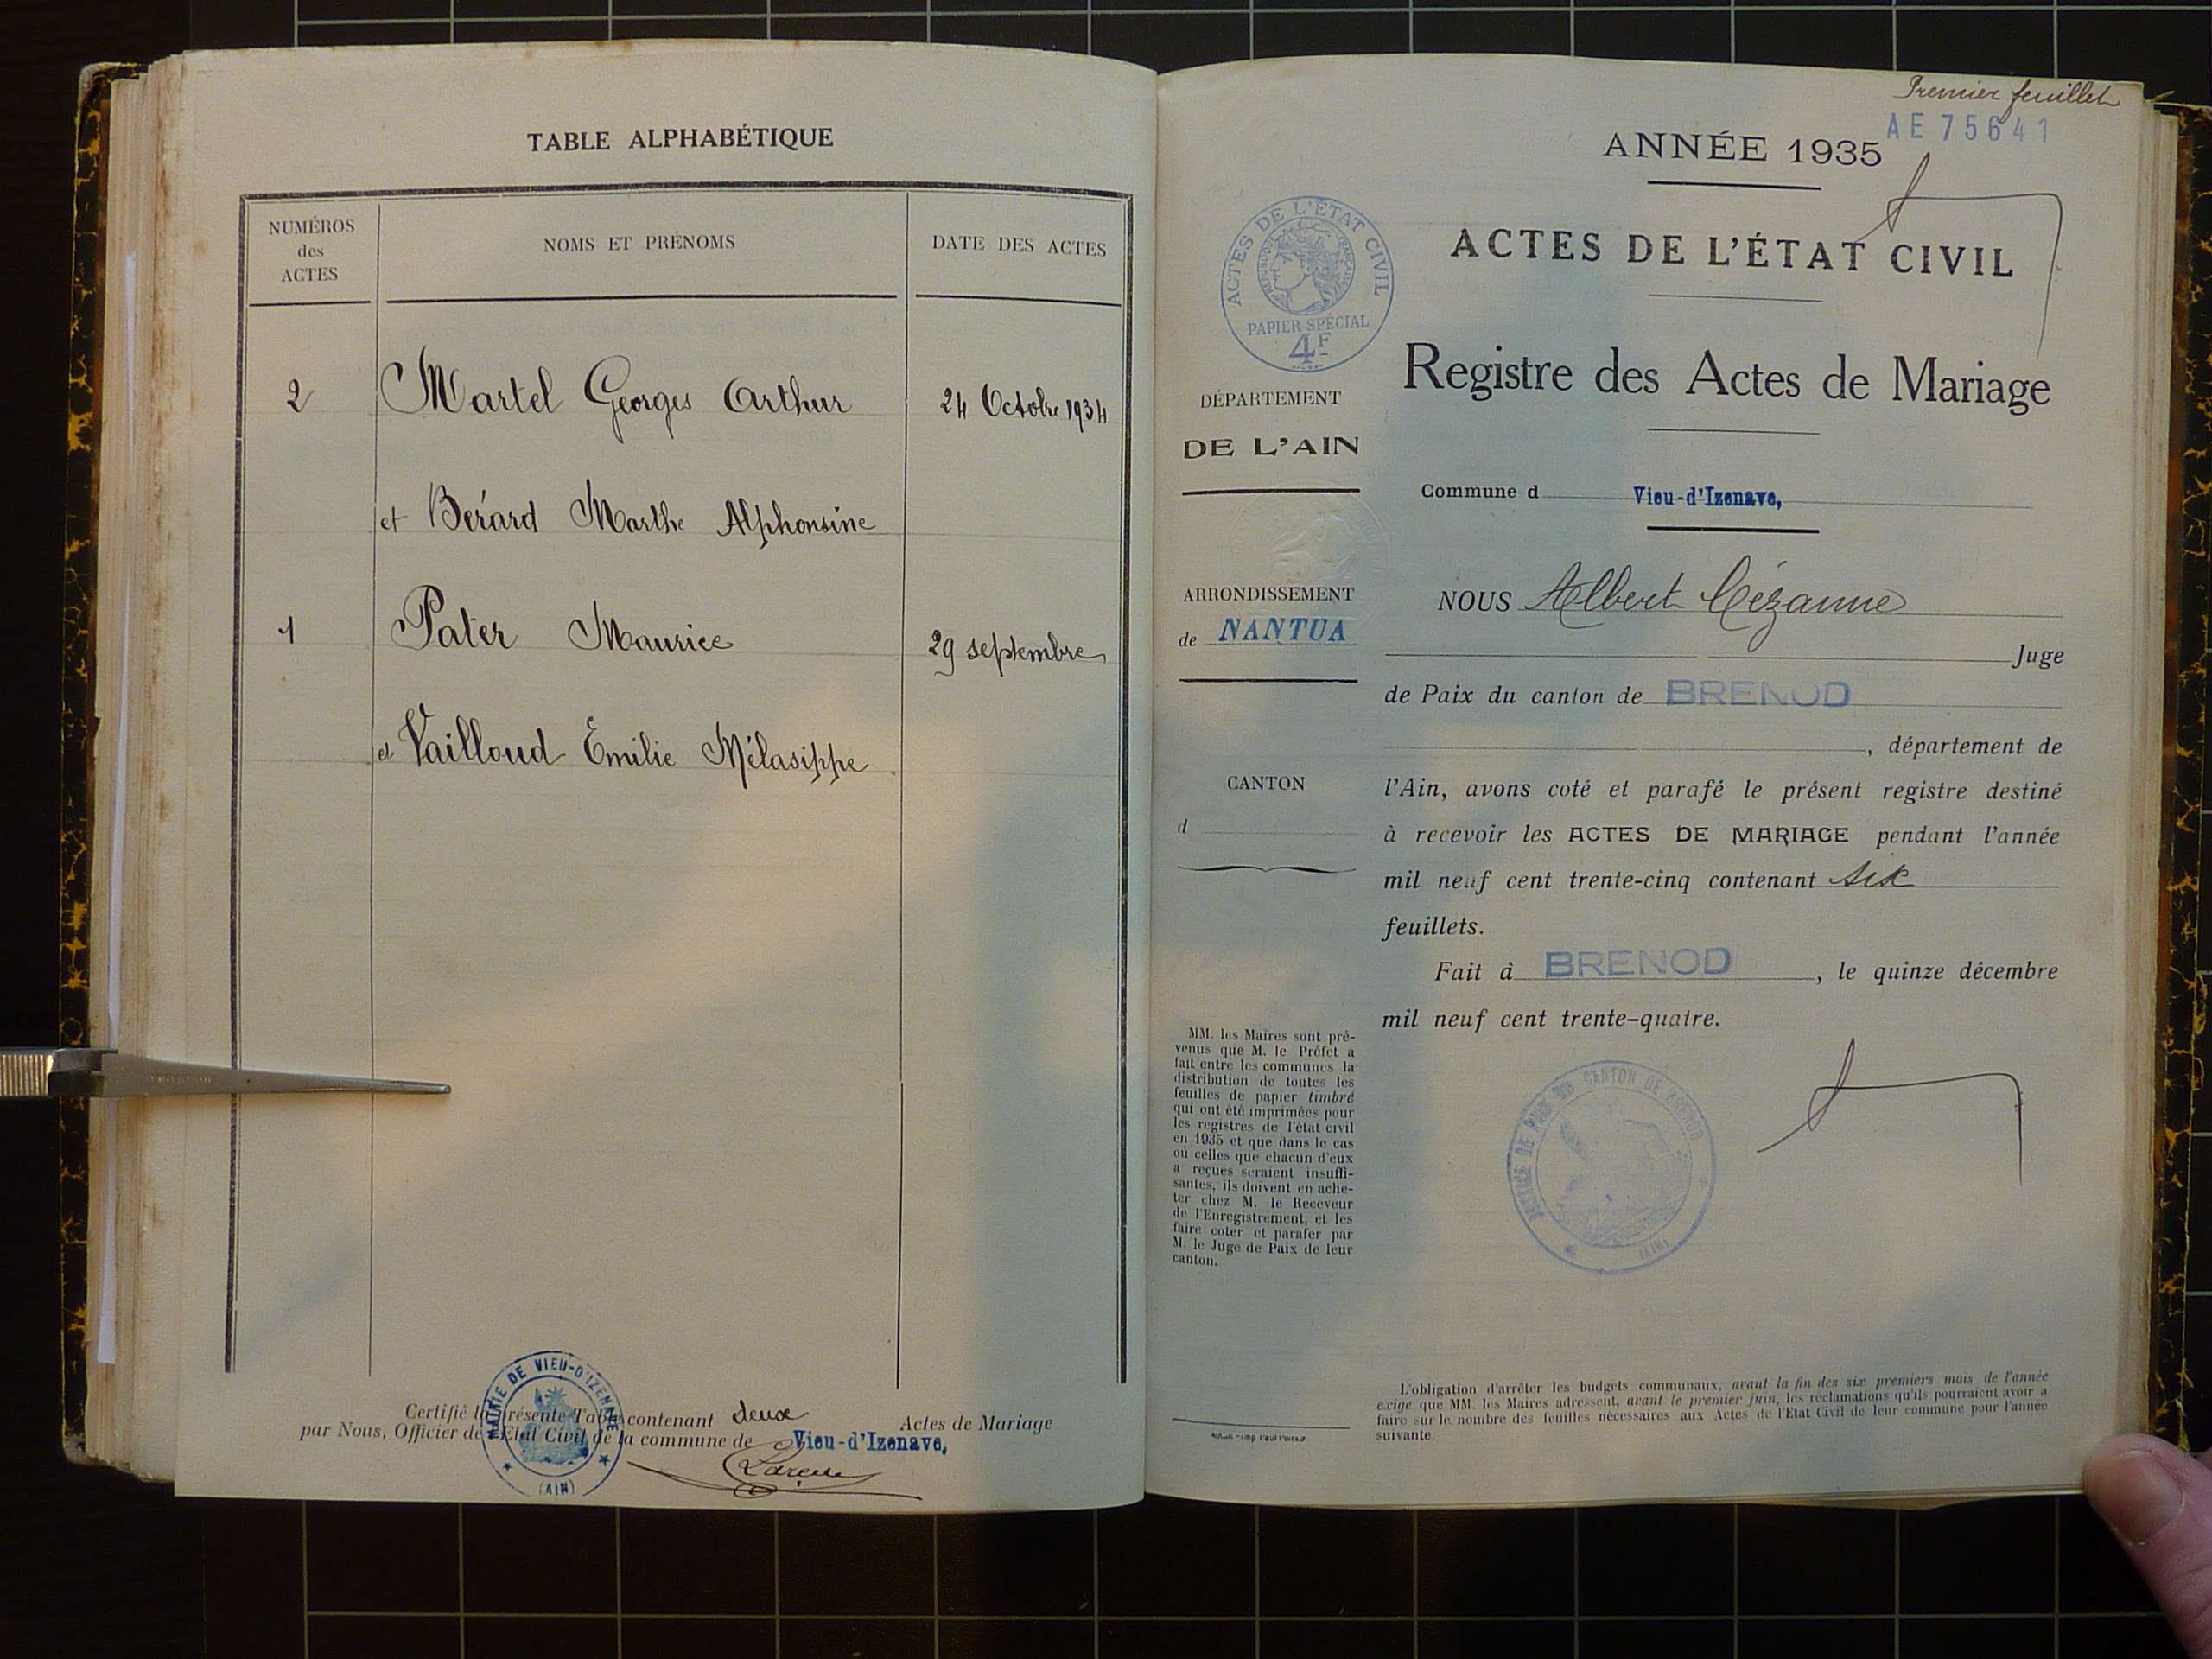 TABLE ALPHABÉTIQUE
NUMÉROS
des
ACTES
NOMS ET PRÉNOMS
DATE DES ACTES
2 Martel Georges Arthur 24 Octobre 1934
et Bérard Marthe Alphonsine
1 Pater Maurice 29 septembre
et Vailloud Émilie Mélasippe
Certifié la présente Table contenant deux Actes de Mariage
par Nous, Officier de l'Etat Civil de la commune de Vieu-d'Izenave,
MAIRIE DE VIEU-D'IZENAVE
(AIN)
Premier feuillet
AE 75641
ANNÉE 1935
ACTES DE L'ÉTAT CIVIL
RÉPUBLIQUE FRANÇAISE
PAPIER SPÉCIAL
4F
ACTES DE L'ÉTAT CIVIL
Registre des Actes de Mariage
DÉPARTEMENT
DE L'AIN
Commune d Vieu-d'Izenave,
ARRONDISSEMENT
de NANTUA
CANTON
d
NOUS Albert Cézanne
Juge
de Paix du canton de BRENOD
, département de
l'Ain, avons coté et parafé le présent registre destiné
à recevoir les ACTES DE MARIAGE pendant l'année
mil neuf cent trente-cinq contenant six
feuillets.
Fait à BRENOD, le quinze décembre
mil neuf cent trente-quatre.
MM. les Maires sont pré-
venus que M. le Préfet a
fait entre les communes la
distribution de toutes les
feuilles de papier timbré
qui ont été imprimées pour
les registres de l'état civil
en 1935 et que dans le cas
où celles que chacun d'eux
a reçues seraient insuffi-
santes, ils doivent en ache-
ter chez M. le Receveur
de l'Enregistrement, et les
faire coter et parafer par
M. le Juge de Paix de leur
canton.
JUSTICE DE PAIX DU CANTON DE BRENOD
(AIN)
L'obligation d'arrêter les budgets communaux, avant la fin des six premiers mois de l'année
exige que MM. les Maires adressent, avant le premier juin, les réclamations qu'ils pourraient avoir à
faire sur le nombre des feuilles nécessaires aux Actes de l'Etat Civil de leur commune pour l'année
suivante.